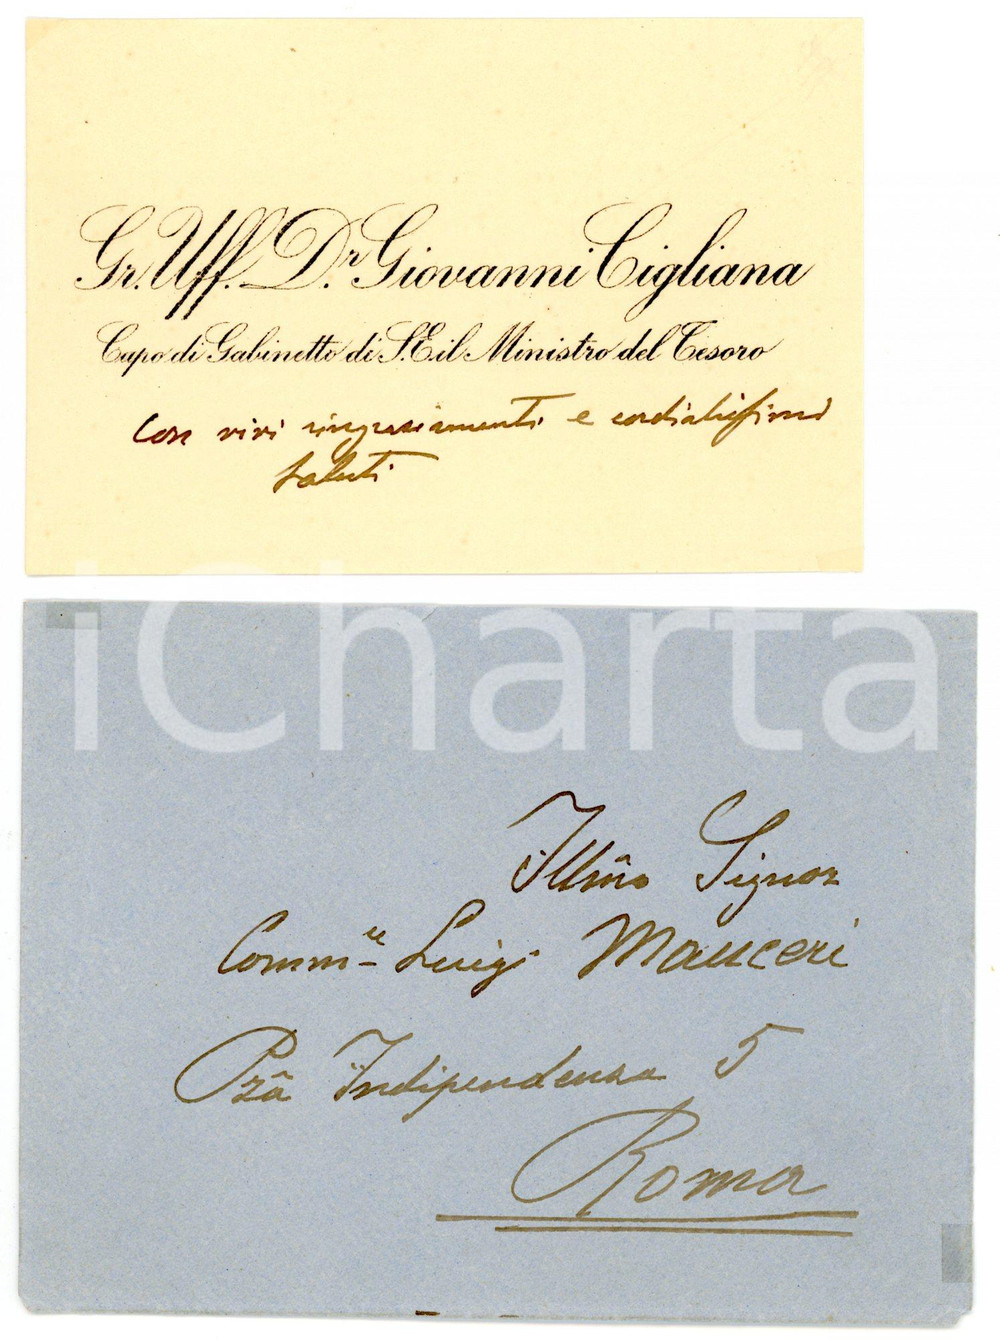 Gr. Uff. D.r Giovanni Cigliana
Capo di Gabinetto di S.E il Ministro del Tesoro
Con vivi ringraziamenti e cordialissimi
saluti
iCharta
Illm̃o Signor
Comm.re Luigi Mauceri
Pzã Indipendenza 5
Roma